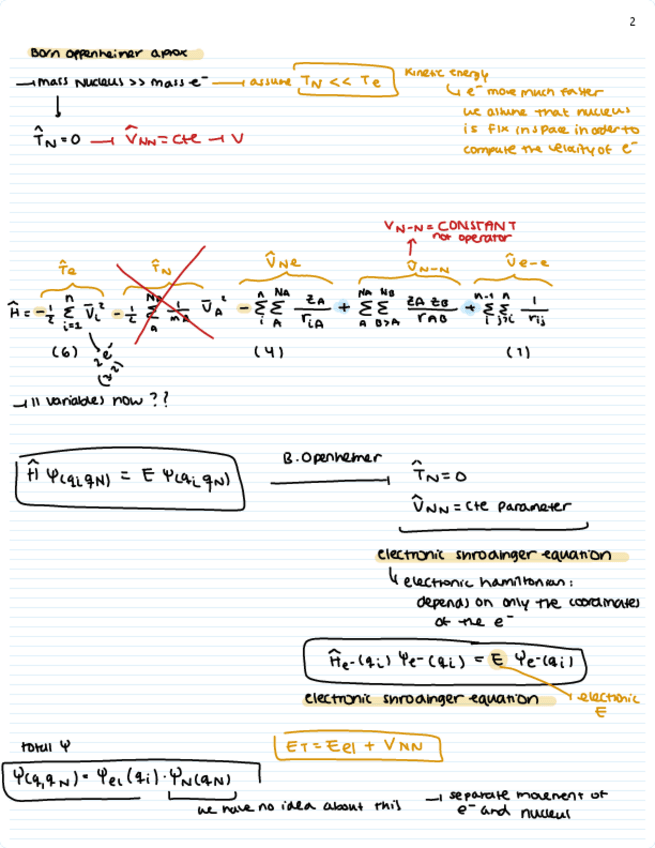 2
Born oppenheimer aprox
→ mass nucleus >> mass e⁻ → assume T_N << T_e
Kinetic energy
↳ e⁻ move much faster
we assume that nucleus
is fix in space in order to
compute the velocity of e⁻
T̂_N = 0 → V̂_NN = cte → V
V_N-N = CONSTANT
not operator
T̂e T̂_N V̂_Ne V̂_N-N V̂e-e
Ĥ = -½ Σ_{i=1}^{n} ∇̄_i² - ½ Σ_A^{NA} 1/m_A ∇̄_A² - Σ_i^n Σ_A^{NA} Z_A/r_iA + Σ_A^{NA} Σ_{B>A}^{NB} Z_A Z_B/r_AB + Σ_i^{n-1} Σ_{j>i}^n 1/r_ij
(6) 2e⁻ (4) (1)
(3·2)
→ 11 variables now ??
Ĥ Ψ(q_i q_N) = E Ψ(q_i q_N)
B. Openheimer
T̂_N = 0
V̂_NN = cte parameter
electronic shrodinger equation
↳ electronic hamiltonian:
depends on only the coordinates
of the e⁻
Ĥe-(q_i) Ψe-(q_i) = E Ψe-(q_i)
electronic shrodinger equation
electronic
E
total Ψ
E_T = E_el + V_NN
Ψ(q,q_N) = Ψ_el(q_i) · Ψ_N(q_N)
we have no idea about this
→ separate movement of
e⁻ and nucleus